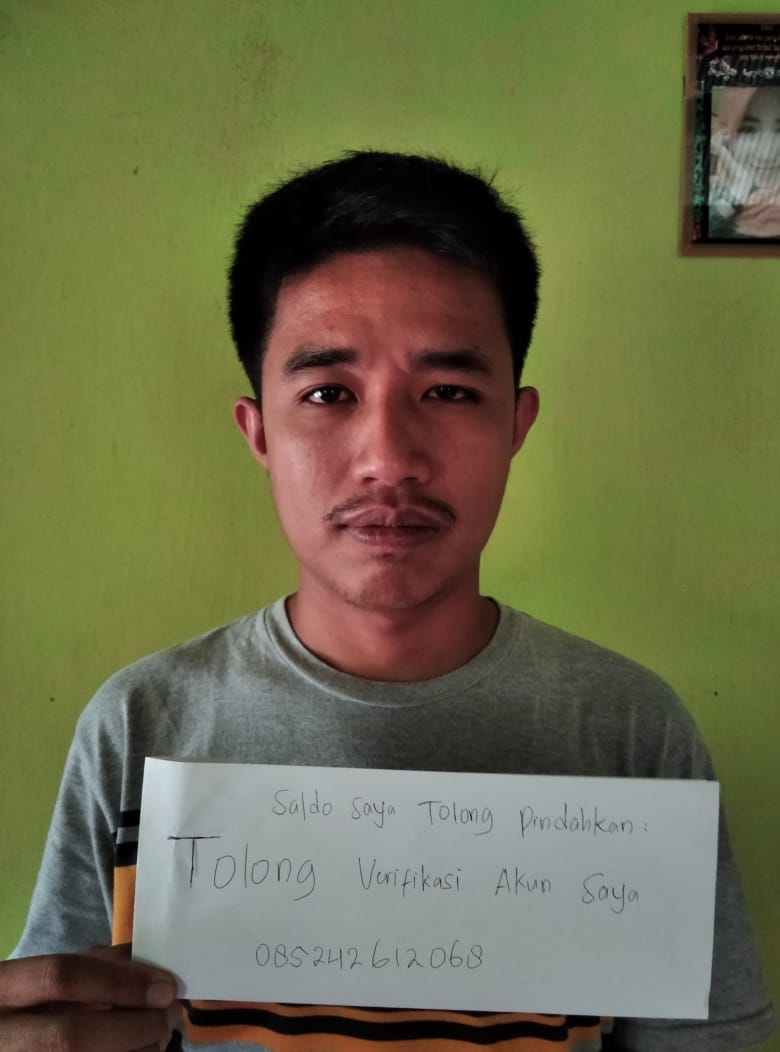 Saldo Saya Tolong Pindahkan :
Tolong Verifikasi Akun Saya
085242612068